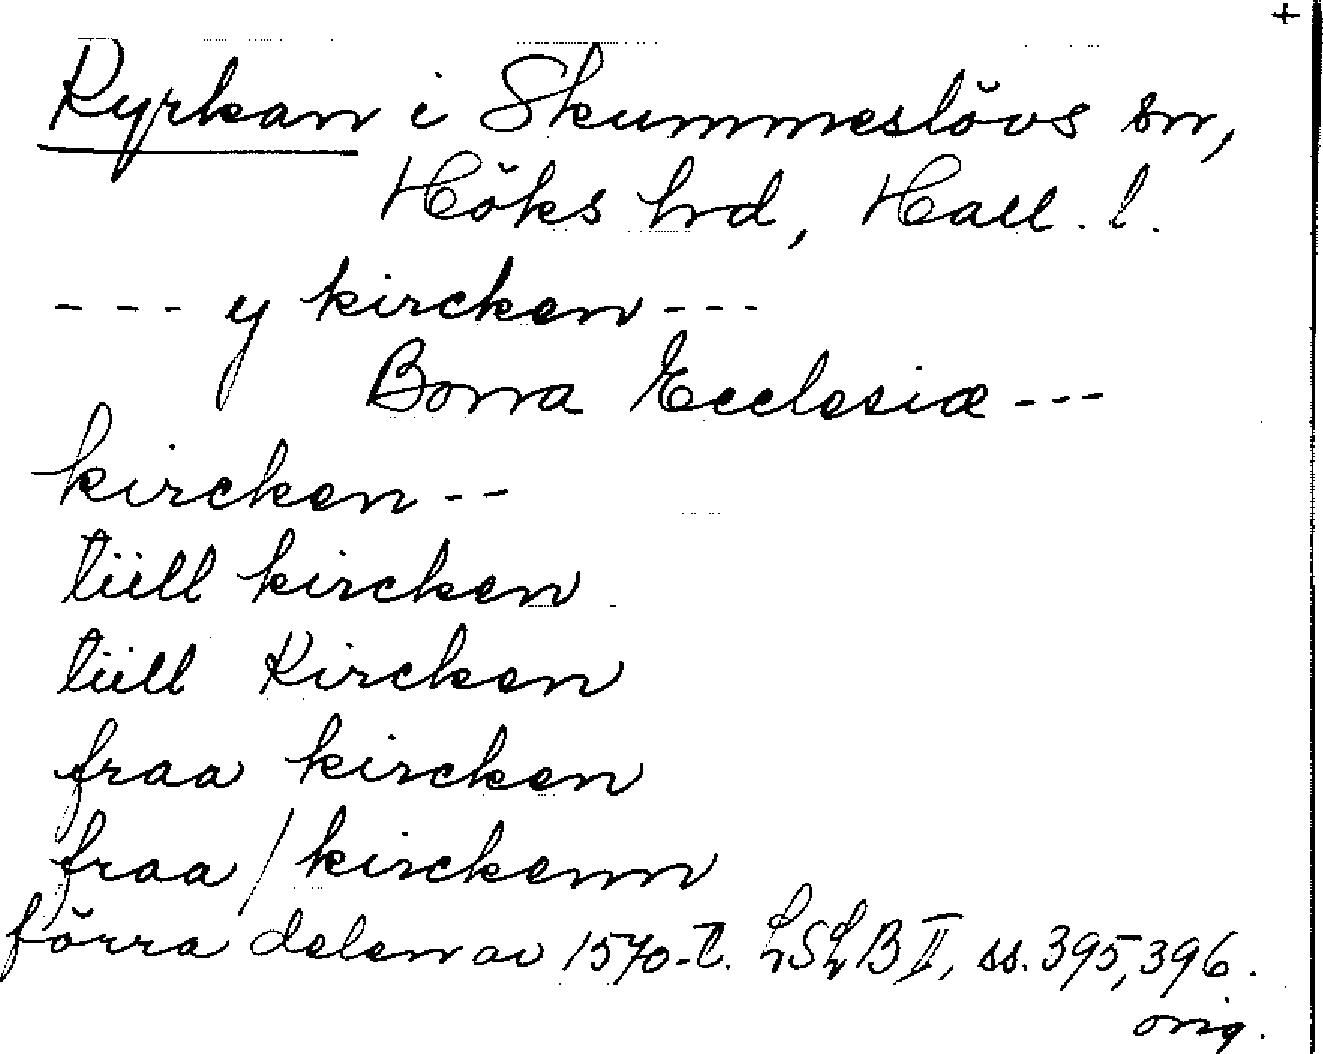 +
Kyrkan i Skummeslövs sn,
Höks hrd, Hall. l.
--- y kircken ---
Borra Ecclesiæ ---
kircken --
tiill kircken
tiill Kircken
fraa kircken
fraa / kirckenn
förra delen av 1570-t. LSLB II, ss. 395, 396.
orig.